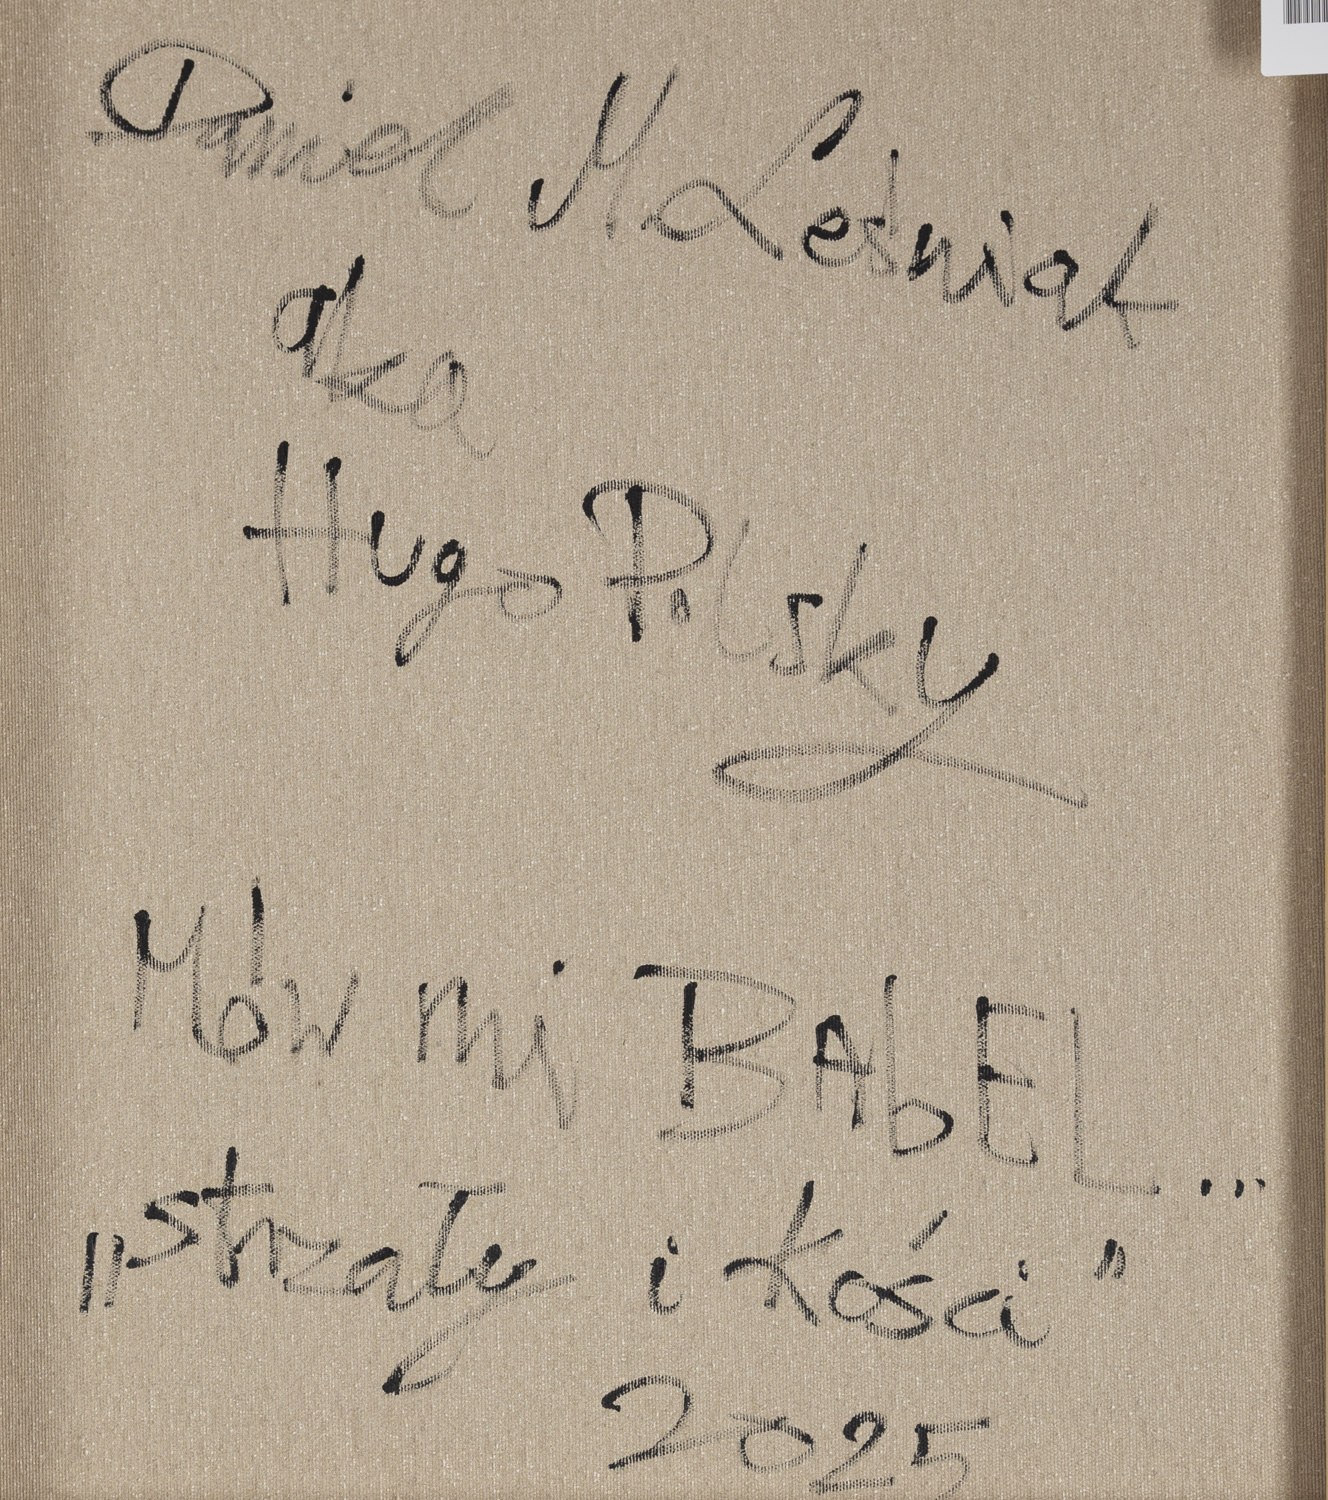 Daniel M Leśniak
aka
Hugo Pilsky
Mów mi BAbEL...
„strzały i kości"
2025